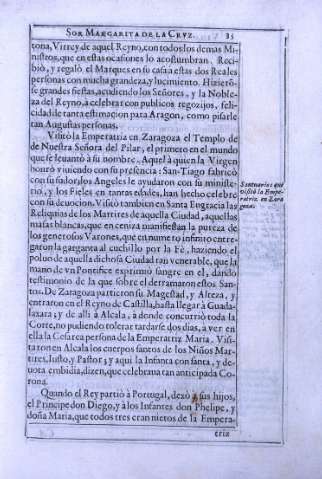 SOR MARGARITA DE LA CRVZ. 35
tona, Virrey de aquel Reyno, con todos los demas Mi-
nistros, que en estas ocasiones lo acostumbran. Reci-
biò, y regalò el Marques en su casa à estas dos Reales
personas con mucha grandeza, y lucimiento. Hizierõ-
se grandes fiestas, acudiendo los Señores, y la Noble-
za del Reyno, à celebrar con publicos regozijos, feli-
cidad de tanta estimacion para Aragon, como pisarle
tan Augustas personas.
Visitò la Emperatriz en Zaragoza el Templo de
de Nuestra Señora del Pilar, el primero en el mundo
que se leuantò à su nombre. Aquel à quien la Virgen
honrò viuiendo con su presencia: San-Tiago fabricò
con su sudor, los Angeles le ayudaron con su ministe-
rio, y los Fieles en tantas edades, han hecho celebre
con su deuocion. Visitò tambien en Santa Eugracia las
Reliquias de los Martires de aquella Ciudad, aquellas
masas blancas, que en ceniza manifiestan la pureza de
los generosos Varones, que en numero infinito entre-
garon la garganta al cuchillo por la Fè, haziendo el
poluo de aquella dichosa Ciudad tan venerable, que la
mano de vn Pontifice exprimiò sangre en el, dando
testimonio de la que sobre el derramaron estos San-
tos. De Zaragoza partieron su Magestad, y Alteza, y
entraron en el Reyno de Castilla, hasta llegar à Guada-
laxara; y de alli à Alcala, à donde concurriò toda la
Corte, no pudiendo tolerar tardarse dos dias, à ver en
ella la Cesarea persona de la Emperatriz Maria. Visi-
taron en Alcala los cuerpos santos de los Niños Mar-
tires, Iusto, y Pastor; y aqui la Infanta con santa, y de-
uota embidia, dizen, que celebraua tan anticipada Co-
rona.
Quando el Rey partiò à Portugal, dexò à sus hijos,
el Principe don Diego, y à los Infantes don Phelipe, y
doña Maria, que todos tres eran nietos de la Empera-
triz
Santuarios que
visitò la Empe-
ratriz en Zara
goza.